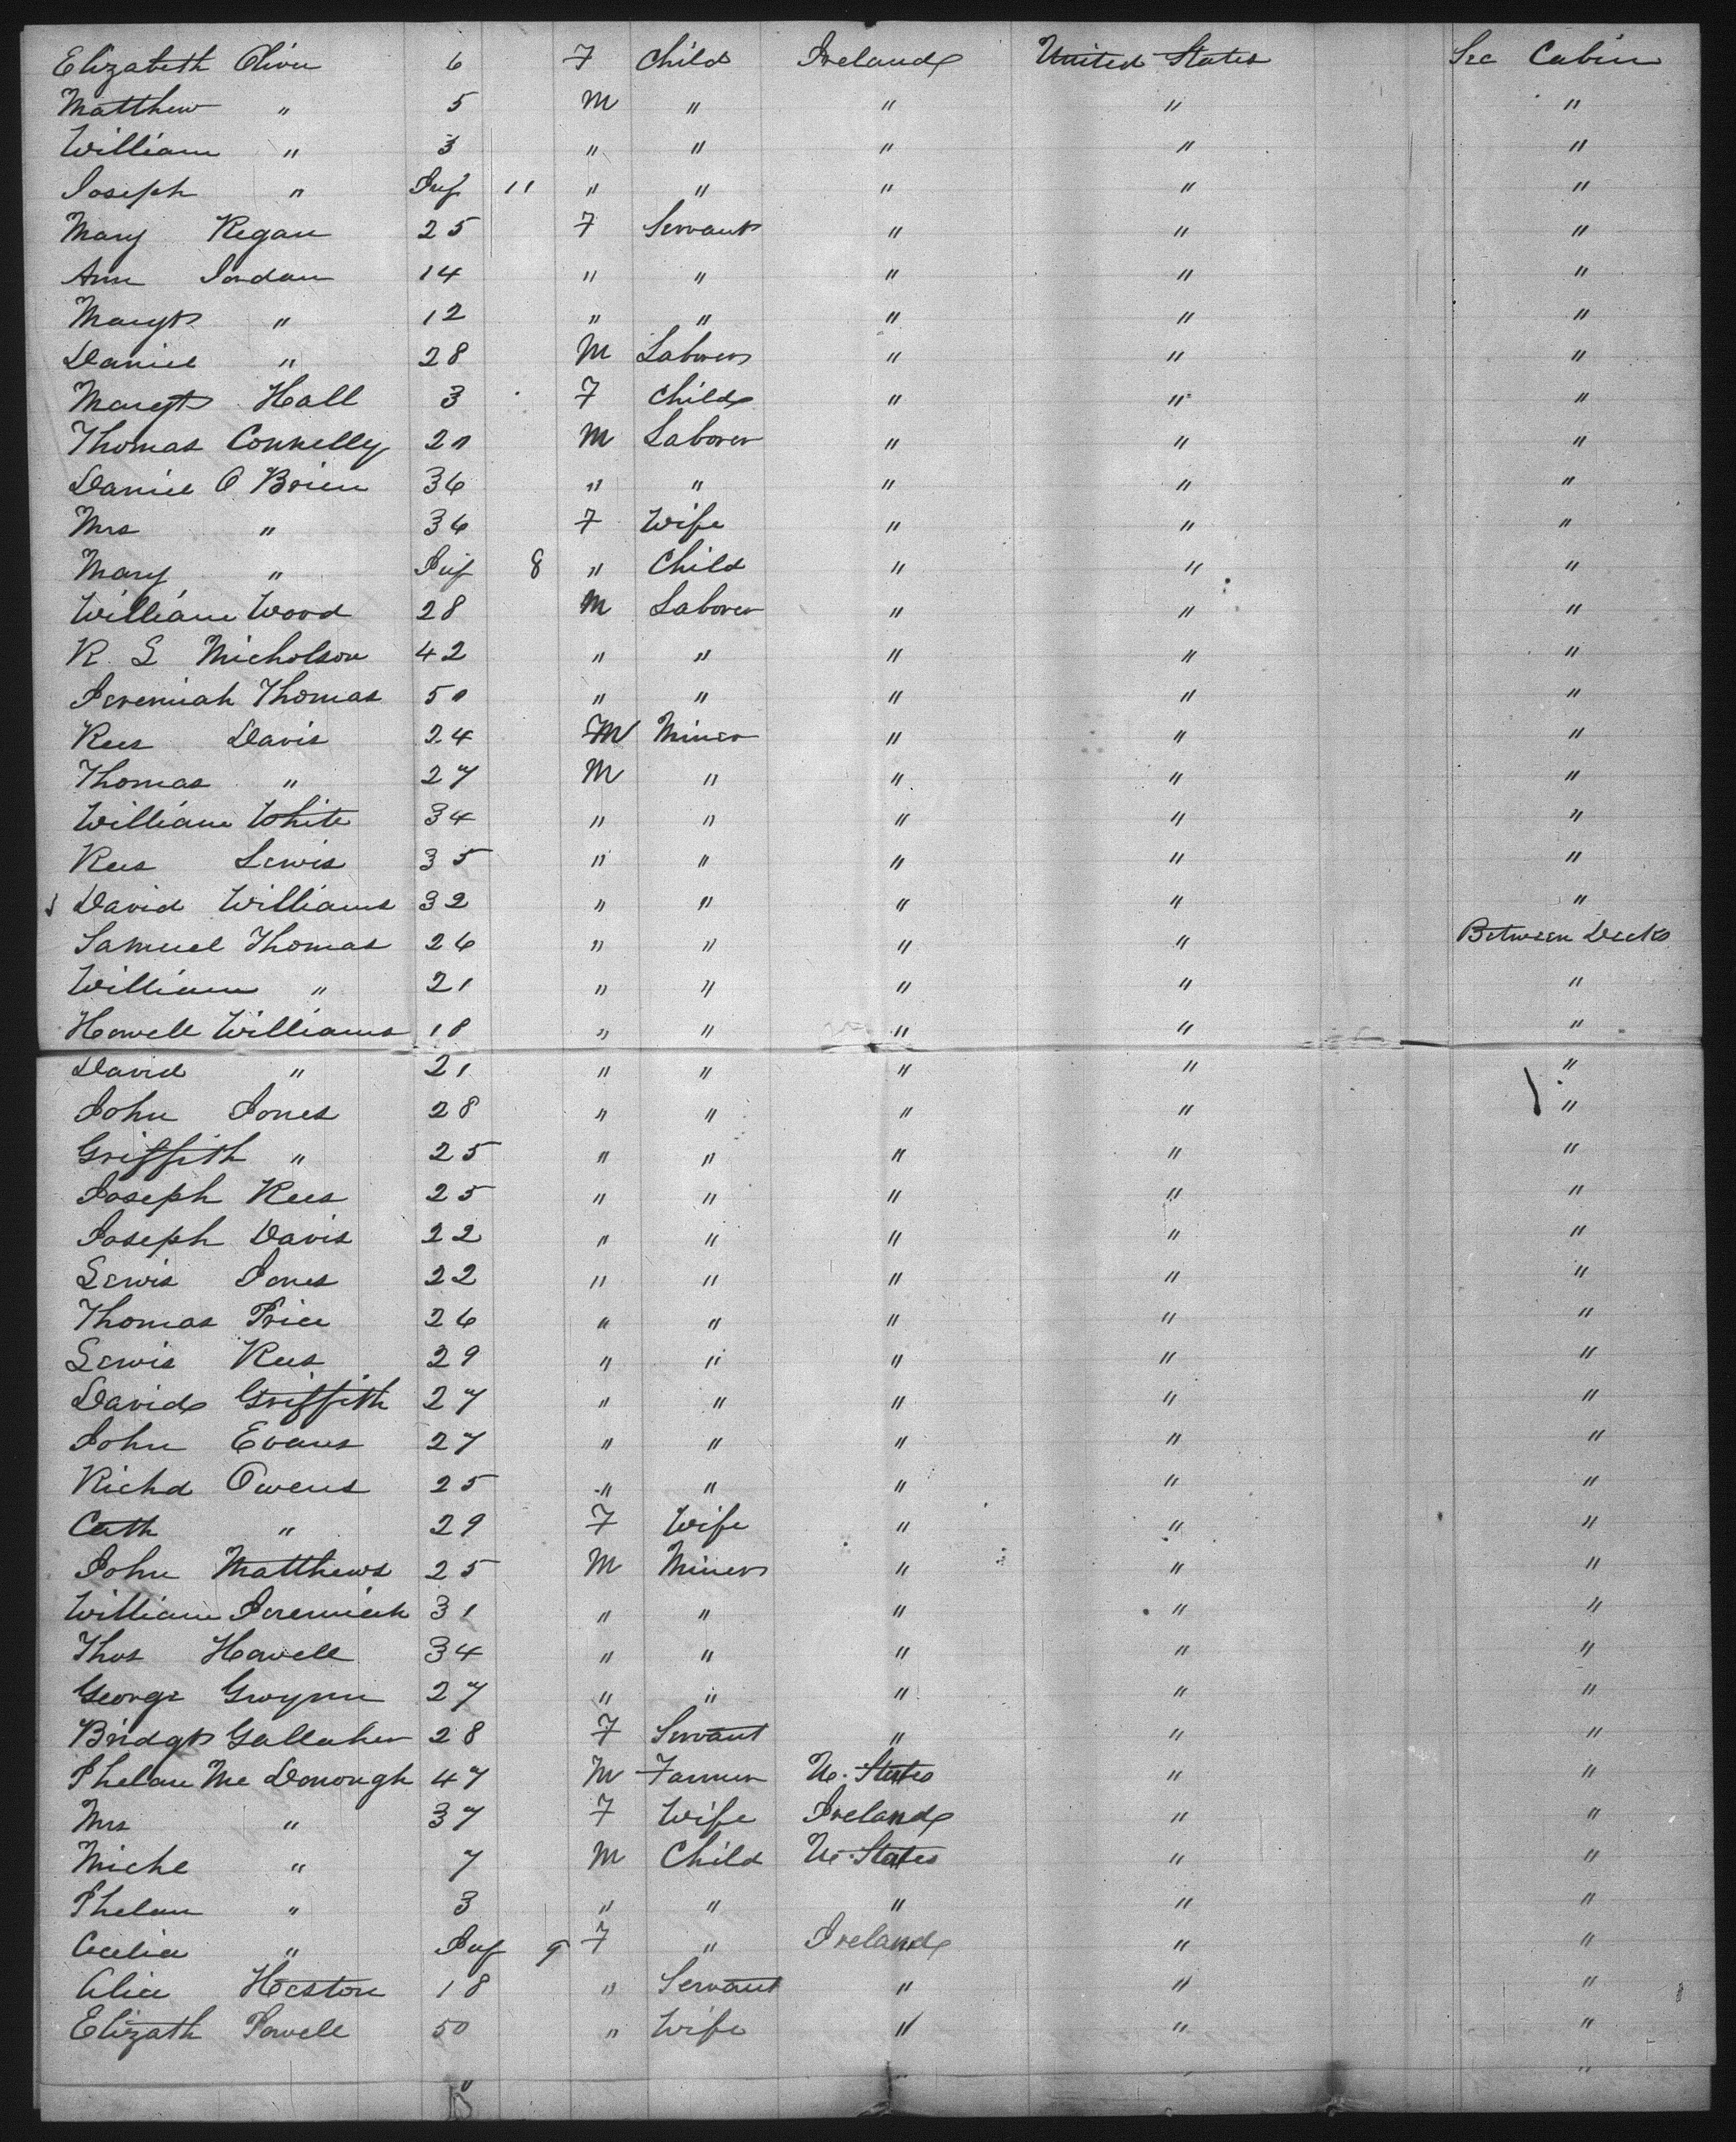 Elizabeth Oliver 6 F Child Ireland United States Sec Cabin
Matthew " 5 M " " " "
William " 3 " " " " "
Joseph " Inf 11 " " " " "
Mary Regan 25 F Servant " " "
Ann Jordan 14 " " " " "
Margt " 12 " " " " "
Daniel " 28 M Laborer " " "
Margt Hall 3 F Child " " "
Thomas Connelly 20 M Laborer " " "
Daniel O Brien 36 " " " " "
Mrs " 36 F Wife " " "
Mary " Inf 8 " Child " " "
William Wood 28 M Laborer " " "
R. S Nicholson 42 " " " " "
Jeremiah Thomas 50 " " " " "
Rees Davis 24 M Miner " " "
Thomas " 27 M " " " "
William White 34 " " " " "
Rees Lewis 35 " " " " "
David Williams 32 " " " " "
Samuel Thomas 26 " " " " Between Decks
William " 21 " " " " "
Howell Williams 18 " " " " "
David " 21 " " " " "
John Jones 28 " " " " "
Griffith " 25 " " " " "
Joseph Rees 25 " " " " "
Joseph Davis 22 " " " " "
Lewis Jones 22 " " " " "
Thomas Price 26 " " " " "
Lewis Rees 29 " " " " "
David Griffith 27 " " " " "
John Evans 27 " " " " "
Richd Owens 25 " " " " "
Cath " 29 F Wife " " "
John Matthews 25 M Miner " " "
William Jeremiah 31 " " " " "
Thos Howell 34 " " " " "
George Gwynn 27 " " " " "
Bridgt Gallaher 28 F Servant " " "
Phelan Mc Donough 47 M Farmer U. States " "
Mrs " 37 F Wife Ireland " "
Michl " 7 M Child U. States " "
Phelan " 3 " " " " "
Cecilia " Inf 9 F " Ireland " "
Alice Heston 18 " Servant " " "
Elizath Powell 50 " Wife " " "